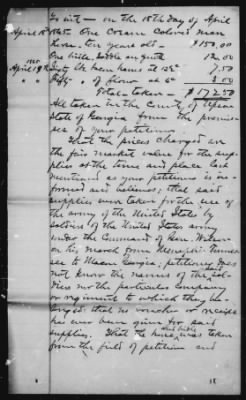 To wit - on the 18th day of April
April 18 1865 One Cream Colored mare
horse - ten years old - $150.00
One bridle, saddle 12.00
April 19 1865 Sixty lbs bacon hams at 12¢ 7.50
" " Fifty " of flour at 6¢ 3.00
Total - taken - $172.50
All taken in the County of Upson
State of Georgia from the premi-
ses of your petitioner
That the prices charged are
the fair market value for the sup-
plies at the time and place last
mentioned as your petitioner is in-
formed and believes; that said
supplies were taken for the use of
the army of the United States by
soldiers of the United States army
under the Command of Gen. Wilson
on his march from Memphis Tennes-
see to Macon Georgia; petitioner does
not know the names of the said sol-
diers nor the particular company
or regiment to which they be-
longed; that no voucher or receipt
has ever been given for said
supplies. That the horse and bridle was taken
from the field of petitioner and
18